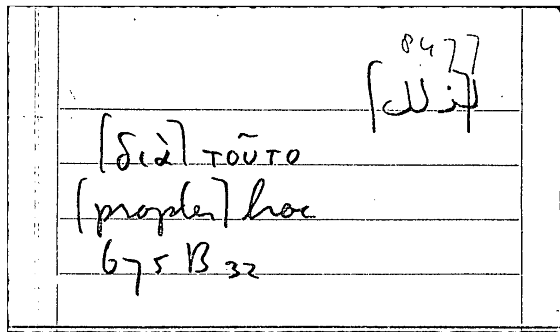 8477
[διὰ] τοῦτο
[propter] hoc
675 B 32